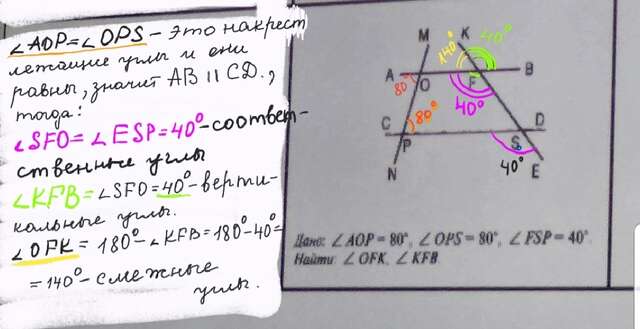 ∠AOP=∠OPS – это накрест
лежащие углы и они
равны, значит AB || CD.,
тогда:
∠SFO = ∠ESP = 40° - соответ-
ственные углы
∠KFB = ∠SFO = 40° - верти-
кальные углы.
∠OFK = 180° - ∠KFB = 180° - 40° =
= 140° - смежные
углы.
M
K
40°
140°
A
80°
O
F
B
40°
C
80°
P
S
D
N
40°
E
Дано: ∠ AOP = 80°, ∠ OPS = 80°, ∠ FSP = 40°.
Найти: ∠ OFK, ∠ KFB.